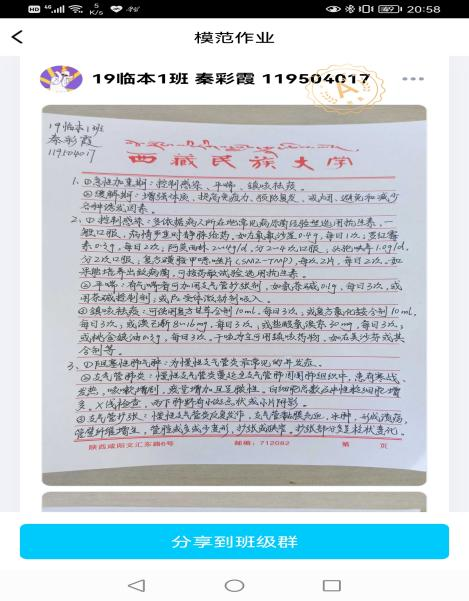 HD 4G 5 K/s 20:58
模范作业
19临本1班 秦彩霞 119504017
A
19临本1班
秦彩霞
119504017
西藏民族大学
1、①急性加重期：控制感染、平喘、镇咳祛痰。
②缓解期：增强体质，提高免疫力，预防复发，戒烟，避免和减少
各种诱发因素。
2、①控制感染：多依据病人所在地常见病原菌经验性选用抗生素，一
般口服，病情严重时静脉给药。如左氧氟沙星0.4g，每日1次；罗红霉
素0.3g，每日2次；阿莫西林2~4g/d，分2~4次口服；头孢呋辛1.0g/d，
分2次口服；复方磺胺甲噁唑片(SMZ-TMP)，每次2片，每日2次。如
果能培养出致病菌，可按药敏试验选用抗生素。
②平喘：有气喘者可加用支气管扩张剂，如氨茶碱0.1g，每日3次，或
用茶碱控释剂；或β2受体激动剂吸入。
③镇咳祛痰：可使用复方甘草合剂10ml，每日3次；或复方氯化铵合剂10ml，
每日3次；或溴己新8~16mg，每日3次；或盐酸氨溴索30mg，每日3次；
或桃金娘油0.3g，每日3次。干咳为主可用镇咳药物，如右美沙芬或其
合剂等。
3、①阻塞性肺气肿：为慢性支气管炎最常见的并发症。
②支气管肺炎：慢性支气管炎蔓延至支气管肺周围组织中，患有寒战、
发热，咳嗽增剧，痰量增加且呈脓性。白细胞总数及中性粒细胞增
多。X线检查，两下肺野有小斑点状或小片阴影。
③支气管扩张：慢性支气管炎反复发作，支气管黏膜充血、水肿，形成溃疡，
管壁纤维增生，管腔或多或少变形，扩张或狭窄。扩张部分多呈柱状变化。
陕西咸阳文汇东路6号 邮编：712082 第 页
分享到班级群